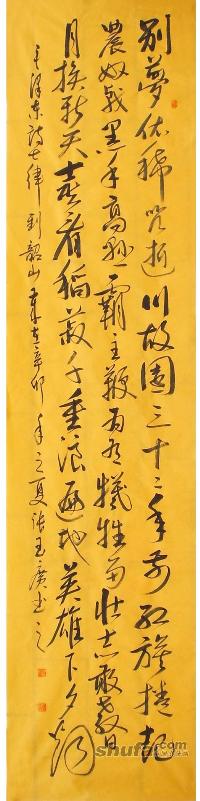 别梦依稀咒逝川故园三十二年前红旗捲起
农奴戟黑手高悬霸主鞭为有牺牲多壮志敢教日
月换新天喜看稻菽千重浪遍地英雄下夕烟
毛泽东诗七律到韶山 岁在辛卯年之夏张玉广书之
shufa